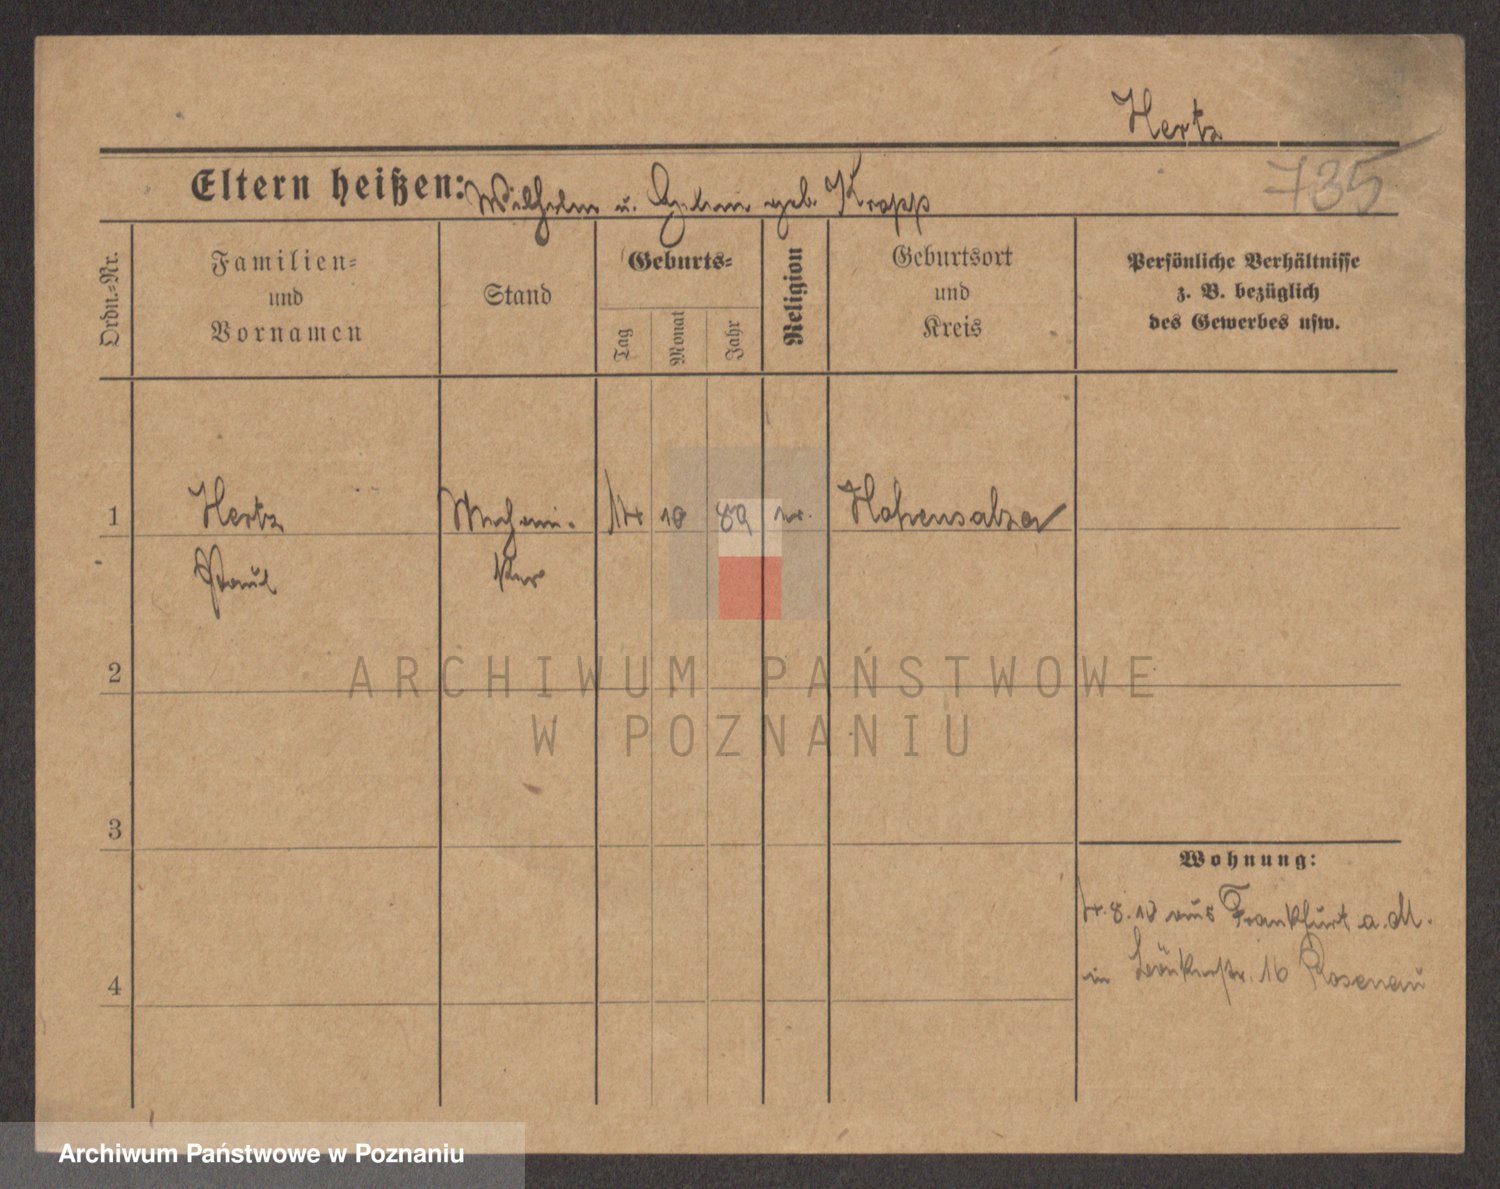 Hertz
735
Eltern heißen: Wilhelm u. geb. Kropp
Ordn.=Nr.
Familien=
und
Vornamen
Stand
Geburts=
Tag
Monat
Jahr
Religion
Geburtsort
und
Kreis
Persönliche Verhältnisse
z. B. bezüglich
des Gewerbes usw.
1 Hertz Mechani- 14 10 89 Hohensalza
Paul ker
ARCHIWUM PAŃSTWOWE
W POZNANIU
2
3
Wohnung:
8. 10 aus Frankfurt a. M.
in 16 Rosenau
4
Archiwum Państwowe w Poznaniu